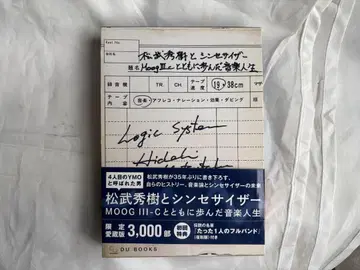 松武秀樹とシンセサイザー
題名 MoogⅢ-cとともに歩んだ音楽人生
録音機 TR. CH. テープ速度 19・38cm
テープ内容 音楽・アフレコ・ナレーション・効果・ダビング
Logic System
Hideki
4人目のYMOと呼ばれた男
松武秀樹が35年ぶりに書き下ろす、
自らのヒストリー、音楽論とシンセサイザーの未来
松武秀樹とシンセサイザー
MOOG III-Cとともに歩んだ音楽人生
限定愛蔵版 3,000部
「たった1人のフルバンド」
DU BOOKS